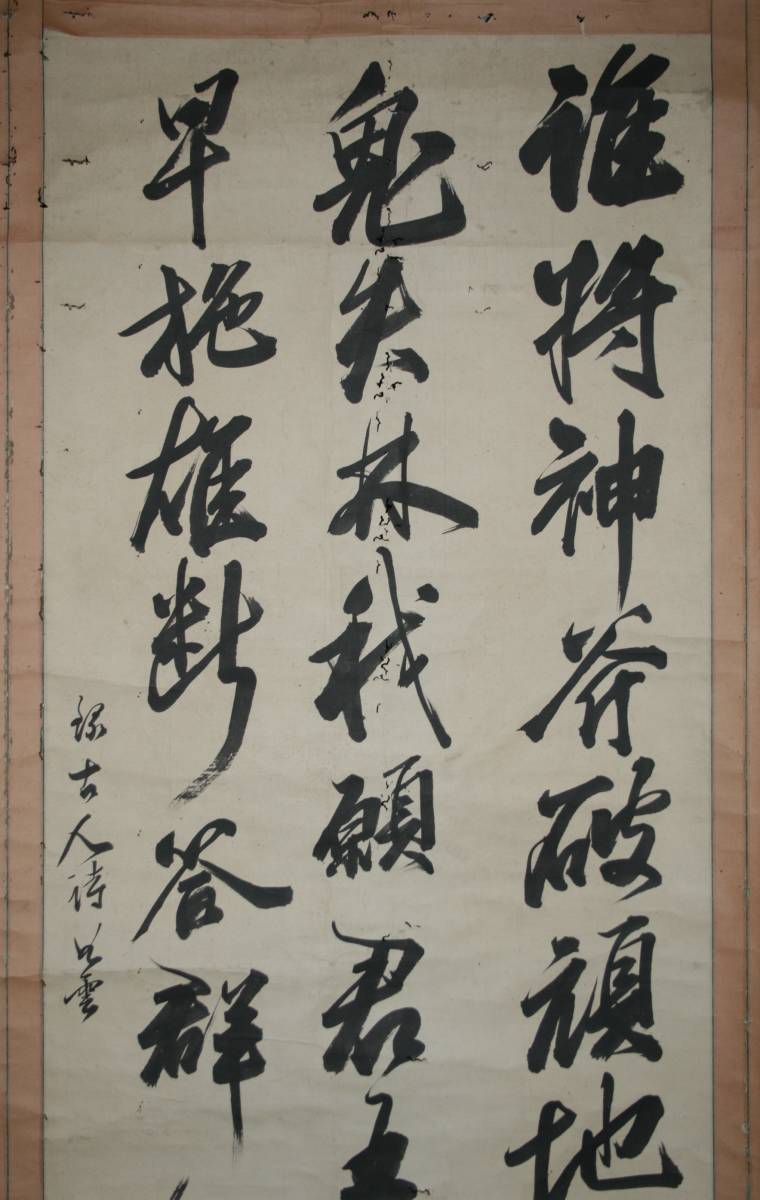 誰將神斧破頑地
鬼失林我願君
早施雄斷答群
録古人詩 雲